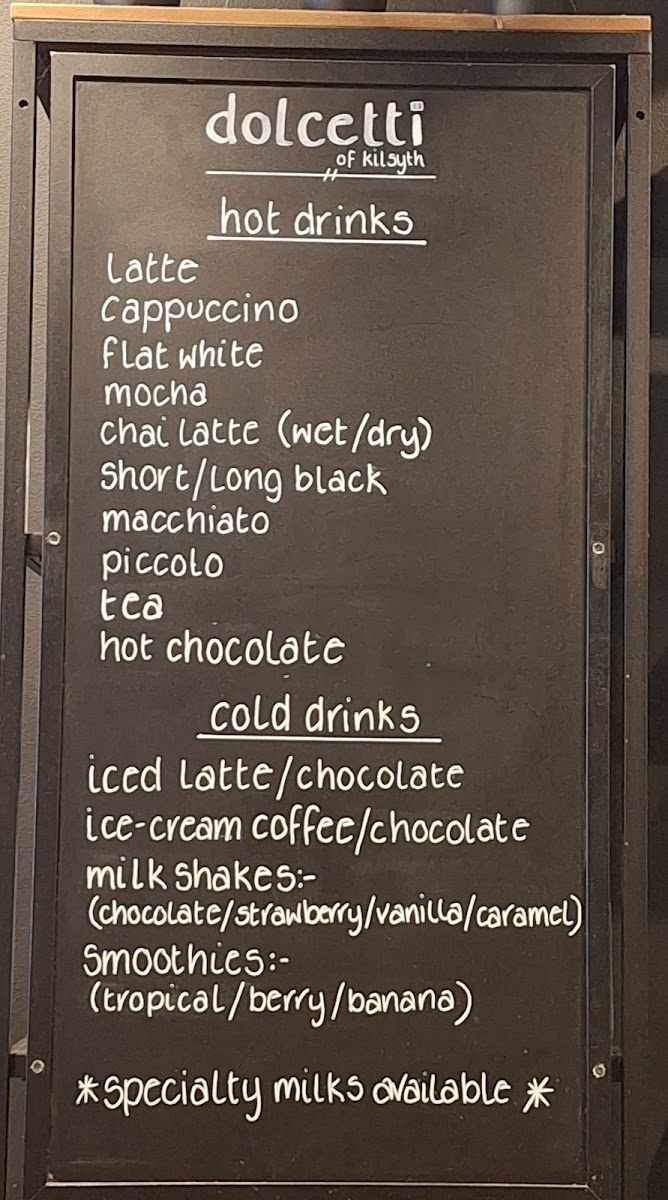 dolcetti
of kilsyth
hot drinks
latte
cappuccino
flat white
mocha
chai latte (wet/dry)
short/long black
macchiato
piccolo
tea
hot chocolate
cold drinks
iced latte/chocolate
ice-cream coffee/chocolate
milkshakes:-
(chocolate/strawberry/vanilla/caramel)
smoothies:-
(tropical/berry/banana)
*specialty milks available *